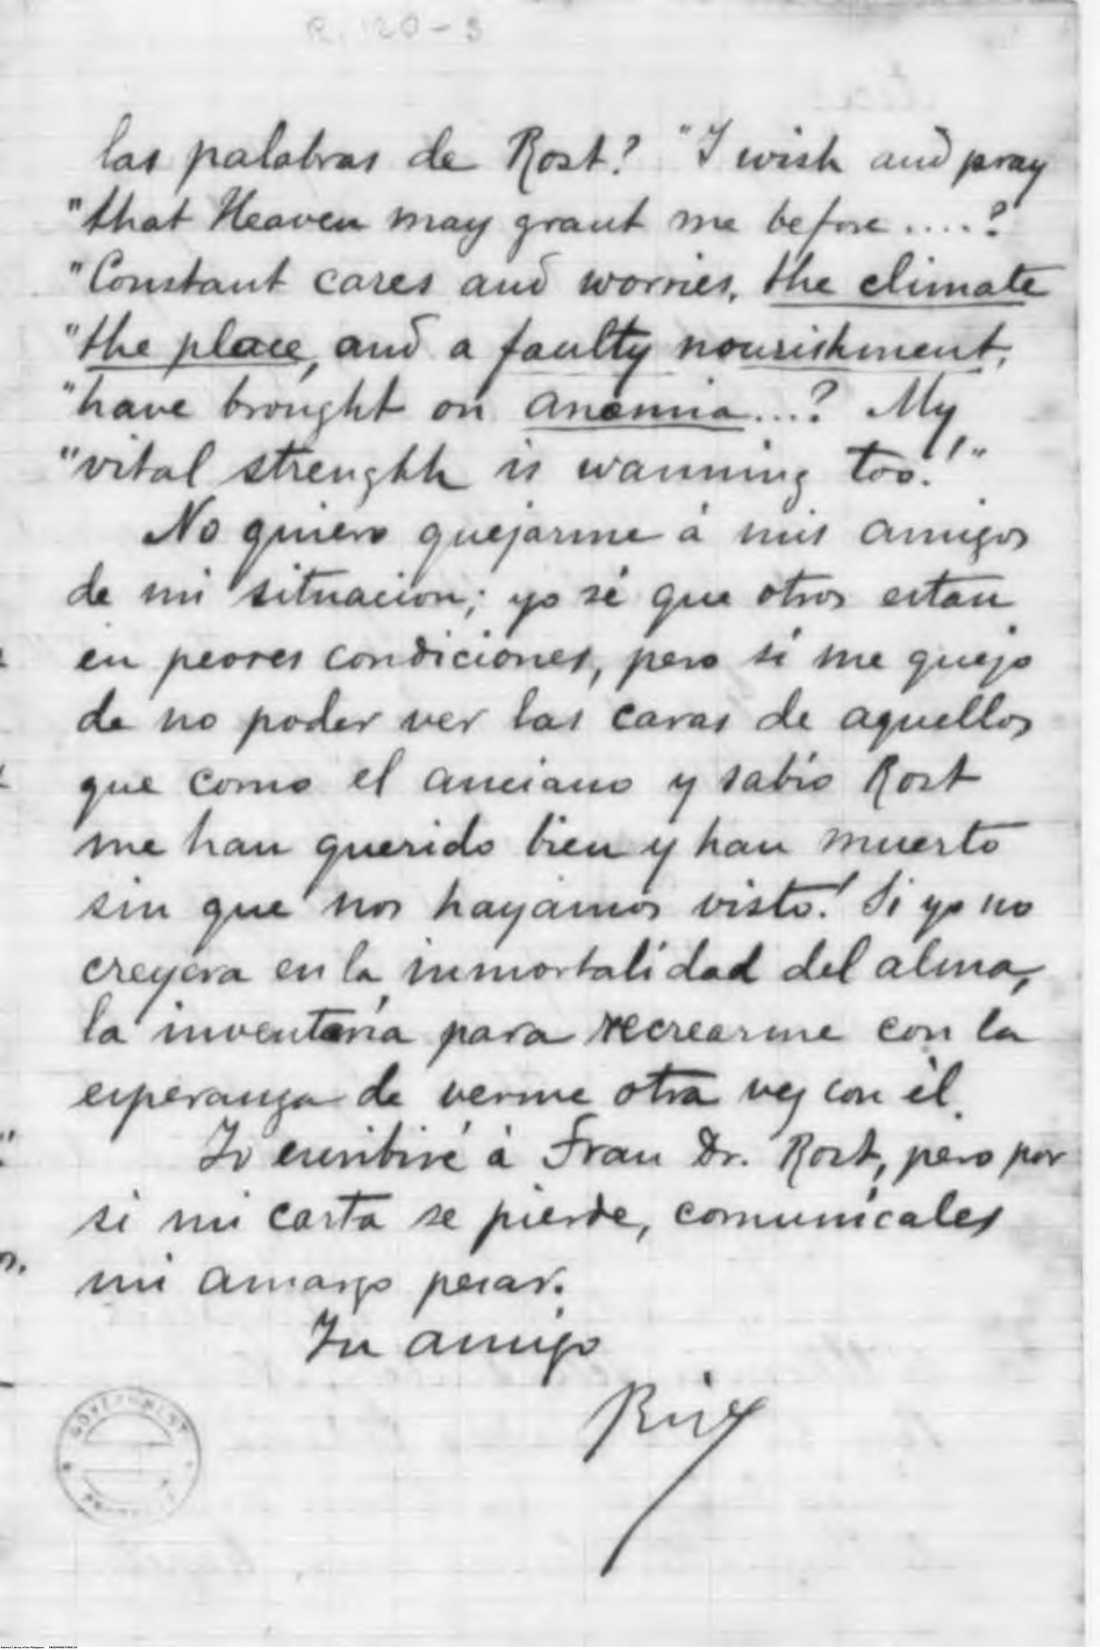 R. 120-3
las palabras de Rost? "I wish and pray
"that Heaven may grant me before ....?
"Constant cares and worries, the climate
"the place, and a faulty nourishment,
"have brought on anemia ...? My
"vital strenghth is wanning too!"
No quiero quejarme á mis amigos
de mi situacion; yo sé que otros estan
en peores condiciones, pero si me quejo
de no poder ver las caras de aquellos
que como el anciano y sabio Rost
me han querido bien y han muerto
sin que nos hayamos visto! Si yo no
creyera en la inmortalidad del alma,
la inventaria para recrearme con la
esperanza de verme otra vez con él.
Yo escribiré á Frau Dr. Rost, pero por
si mi carta se pierde, comunícales
mi amargo pesar.
Tu amigo
GOVERNMENT